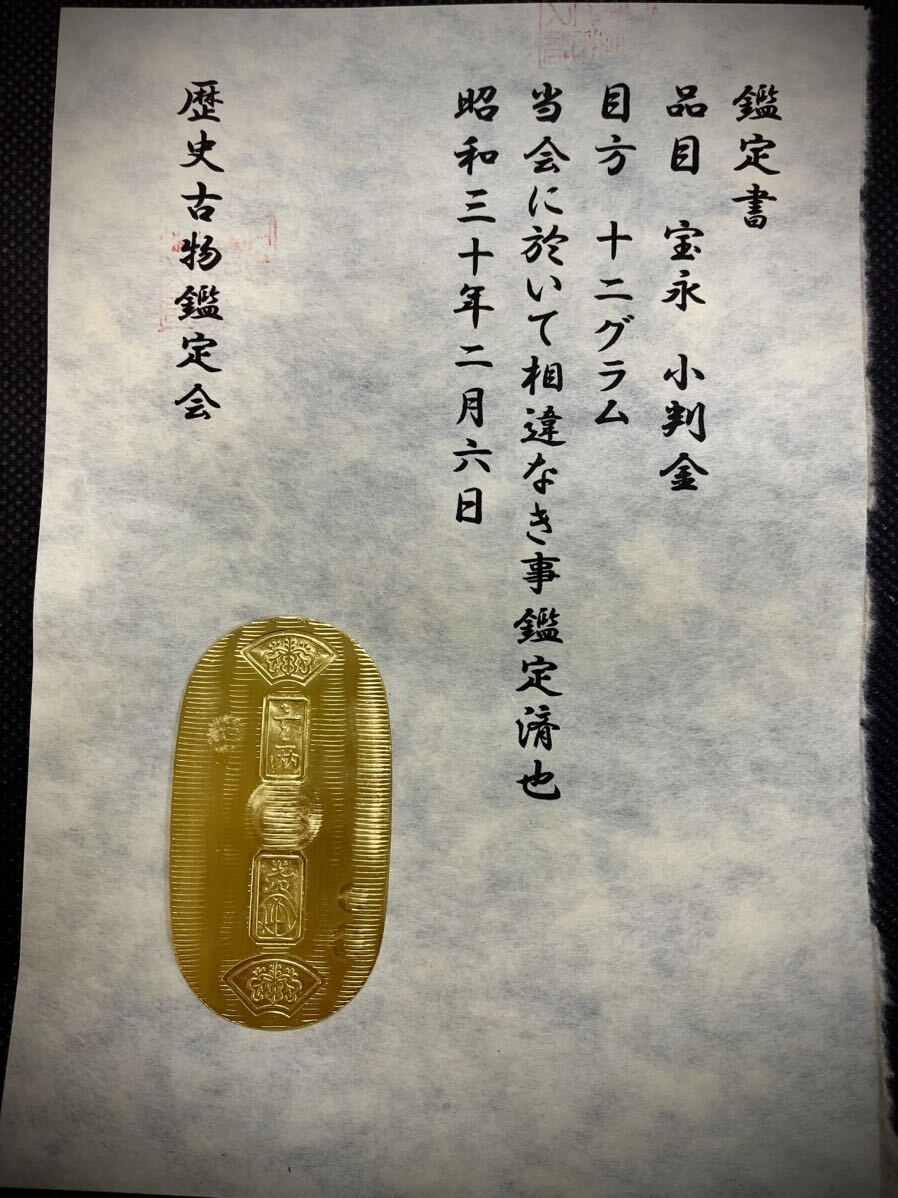 鑑定書
品目 宝永 小判金
目方 十二グラム
当会に於いて相違なき事鑑定済也
昭和三十年二月六日
歴史古物鑑定会